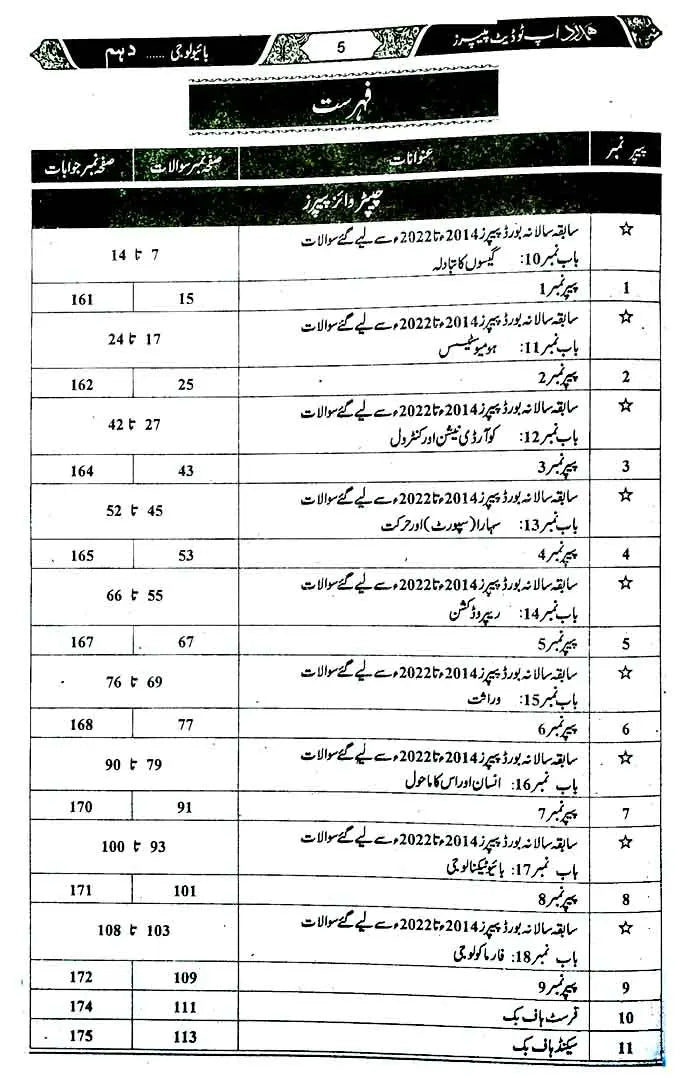 ہمدرد اپ ٹو ڈیٹ پیپرز 5 بائیولوجی ...... دہم
فہرست
پیپر نمبر عنوانات صفحہ نمبر سوالات صفحہ نمبر جوابات
چیپٹر وائز پیپرز
☆ سابقہ سالانہ بورڈ پیپرز 2014ء تا 2022ء سے لیے گئے سوالات
باب نمبر 10: گیسوں کا تبادلہ 7 تا 14
1 پیپر نمبر 1 15 161
☆ سابقہ سالانہ بورڈ پیپرز 2014ء تا 2022ء سے لیے گئے سوالات
باب نمبر 11: ہومیوسٹیسس 17 تا 24
2 پیپر نمبر 2 25 162
☆ سابقہ سالانہ بورڈ پیپرز 2014ء تا 2022ء سے لیے گئے سوالات
باب نمبر 12: کوآرڈی نیشن اور کنٹرول 27 تا 42
3 پیپر نمبر 3 43 164
☆ سابقہ سالانہ بورڈ پیپرز 2014ء تا 2022ء سے لیے گئے سوالات
باب نمبر 13: سہارا (سپورٹ) اور حرکت 45 تا 52
4 پیپر نمبر 4 53 165
☆ سابقہ سالانہ بورڈ پیپرز 2014ء تا 2022ء سے لیے گئے سوالات
باب نمبر 14: ریپروڈکشن 55 تا 66
5 پیپر نمبر 5 67 167
☆ سابقہ سالانہ بورڈ پیپرز 2014ء تا 2022ء سے لیے گئے سوالات
باب نمبر 15: وراثت 69 تا 76
6 پیپر نمبر 6 77 168
☆ سابقہ سالانہ بورڈ پیپرز 2014ء تا 2022ء سے لیے گئے سوالات
باب نمبر 16: انسان اور اس کا ماحول 79 تا 90
7 پیپر نمبر 7 91 170
☆ سابقہ سالانہ بورڈ پیپرز 2014ء تا 2022ء سے لیے گئے سوالات
باب نمبر 17: بائیوٹیکنالوجی 93 تا 100
8 پیپر نمبر 8 101 171
☆ سابقہ سالانہ بورڈ پیپرز 2014ء تا 2022ء سے لیے گئے سوالات
باب نمبر 18: فارماکولوجی 103 تا 108
9 پیپر نمبر 9 109 172
10 فرسٹ ہاف بک 111 174
11 سیکنڈ ہاف بک 113 175